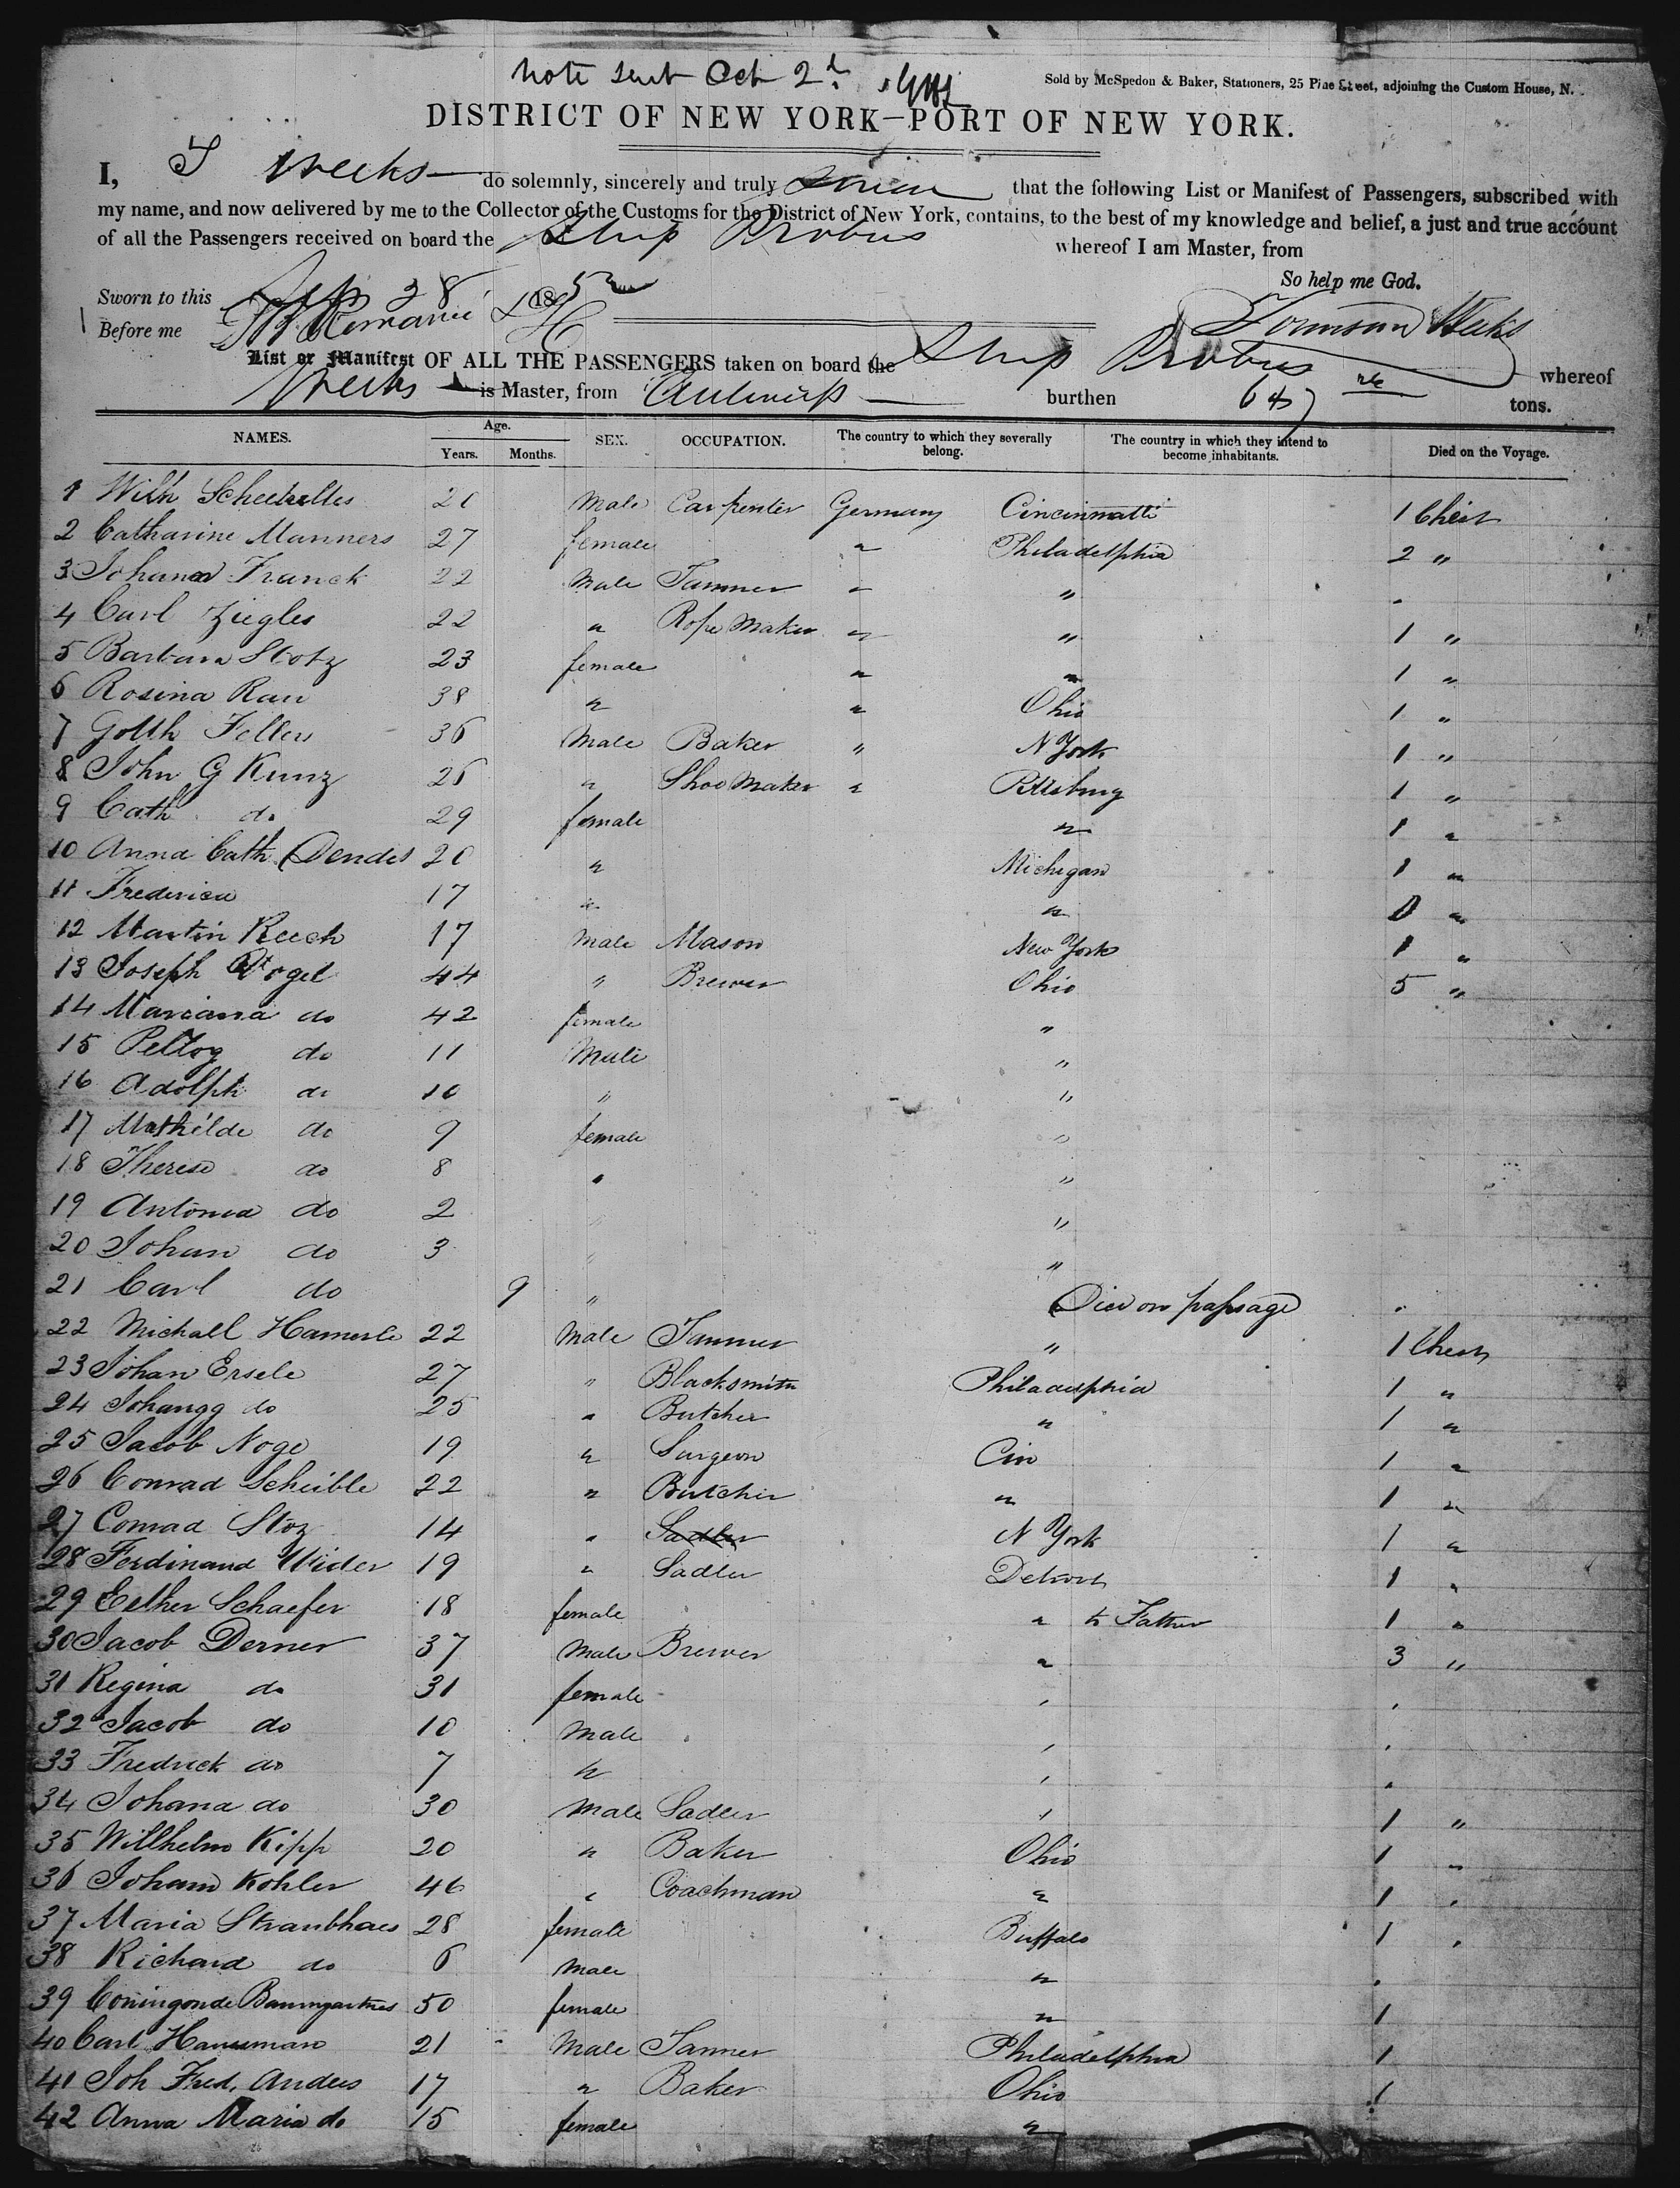 Note sent Oct 2d
Sold by McSpedon & Baker, Stationers, 25 Pine Street, adjoining the Custom House, N.
DISTRICT OF NEW YORK—PORT OF NEW YORK.
I, T Weeks do solemnly, sincerely and truly swear that the following List or Manifest of Passengers, subscribed with
my name, and now delivered by me to the Collector of the Customs for the District of New York, contains, to the best of my knowledge and belief, a just and true account
of all the Passengers received on board the Ship Probus whereof I am Master, from
So help me God.
Sworn to this Sep 28 185
Before me
Weeks
List or Manifest OF ALL THE PASSENGERS taken on board the Ship Probus whereof
Weeks is Master, from Antwerp burthen 647 tons.
NAMES. Age. Years. Months. SEX. OCCUPATION. The country to which they severally belong. The country in which they intend to become inhabitants. Died on the Voyage.
1 Wilh 20 Male Carpenter Germany Cincinnatti 1 Chest
2 Catharine Manners 27 female " Philadelphia 2 "
3 Johann Franck 22 Male Tanner " "
4 Carl Ziegles 22 " Rope Maker " " 1 "
5 Barbara Stotz 23 female " " 1 "
6 Rosina Rau 38 " " Ohio 1 "
7 Gotth Fellers 36 Male Baker " N York 1 "
8 John G Kunz 26 " Shoe Maker " Pittsburg 1 "
9 Cath do 29 female " 1 "
10 Anna Cath Dendes 20 " Michigan 1 "
11 Frederica 17 " " "
12 Martin Reech 17 Male Mason New York 1 "
13 Joseph Vogel 44 " Brewer Ohio 5 "
14 Mariana do 42 female "
15 Pellog do 11 Male "
16 Adolph do 10 " "
17 Mathilde do 9 female "
18 Therese do 8 " "
19 Antonia do 2 " "
20 Johan do 3 " "
21 Carl do 9 " Died on passage
22 Michall Hamerle 22 Male Tanner " 1 Chest
23 Johan Ersele 27 " Blacksmith Philadelphia 1 "
24 Johangg do 25 " Butcher " 1 "
25 Jacob Noge 19 " Surgeon Cin 1 "
26 Conrad Scheible 22 " Butcher " 1 "
27 Conrad Stoz 14 " Sadler N York 1 "
28 Ferdinand Wider 19 " Sadler Detroit 1 "
29 Esther Schaefer 18 female " to Father 1 "
30 Jacob Derner 37 Male Brewer " 3 "
31 Regina do 31 female "
32 Jacob do 10 Male "
33 Fredrick do 7 " "
34 Johana do 30 Male Sadler " 1 "
35 Willhelm Kipp 20 " Baker Ohio 1 "
36 Johann Kohler 46 " Coachman " 1 "
37 Maria Straubhaes 28 female Buffalo 1 "
38 Richard do 6 Male "
39 Coningonde Baumgartnes 50 female " 1
40 Carl Hausman 21 Male Tanner Philadelphia 1
41 Joh Fred. Anders 17 " Baker Ohio 1
42 Anna Maria do 15 female "